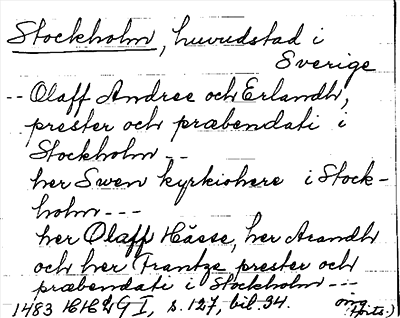 Stockholm, huvudstad i
Sverige
-- Olaff Andree och Erlandh,
prester och præbendati i
Stockholm --
her Swen kyrkiohere i Stock-
holm ---
her Olaff Hásse, her Arandh
och her Frantze prester och
præbendati i Stockholm ---
1483 HH I, s. 127, bil. 34. omg
(forts.)